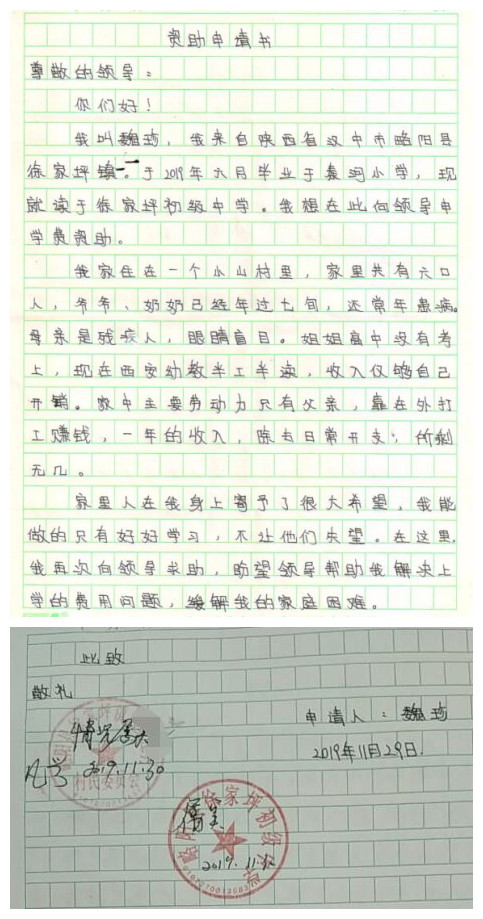 资助申请书
尊敬的领导：
你们好！
我叫魏琦，我来自陕西省汉中市略阳县
徐家坪镇。于2019年六月毕业于秦河小学，现
就读于徐家坪初级中学。我想在此向领导申
学费资助。
我家住在一个小山村里，家里共有六口
人，爷爷、奶奶已经年过七旬，还常年患病。
母亲是残疾人，眼睛盲目。姐姐高中没有考
上，现在西安幼教半工半读，收入仅够自己
开销。家中主要劳动力只有父亲，靠在外打
工赚钱，一年的收入，除去日常开支，所剩
无几。
家里人在我身上寄予了很大希望，我能
做的只有好好学习，不让他们失望。在这里，
我再次向领导求助，盼望领导帮助我解决上
学的费用问题，缓解我的家庭困难。
此致
敬礼
申请人：魏琦
2019年11月29日.
情况属
2019.11.30
村民委员会
徐家坪初级
属实
2019.11.30